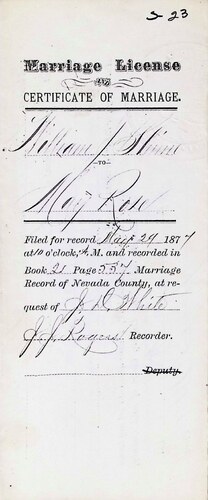 S-23
Marriage License
AND
CERTIFICATE OF MARRIAGE.
William J
—TO—
May Rose
Filed for record May 29 1877
at 10 o'clock, A. M. and recorded in
Book 21 Page 557 Marriage
Record of Nevada County, at re-
quest of J. D. White
J. J. Rogers Recorder.
Deputy.